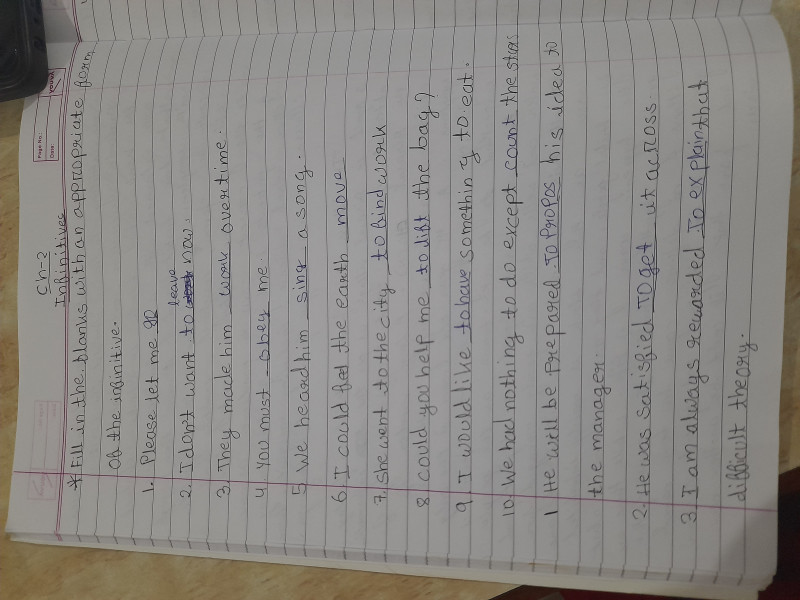 Page No.
Date:
YOUVA
Ch-2
Infinitives
* Fill in the blanks with an appropriate form
of the infinitive.
1. Please let me go
leave
2. I don't want to now.
3. They made him work overtime.
4. You must obey me.
5. We heard him sing a song.
6. I could feel the earth move
7. She went to the city to find work
8. could you help me to lift the bag?
9. I would like to have something to eat.
10. We had nothing to do except count the stars
1 He will be prepared To Propos his idea to
the manager.
2. He was satisfied To get it across.
3. I am always rewarded To explain that
difficult theory.